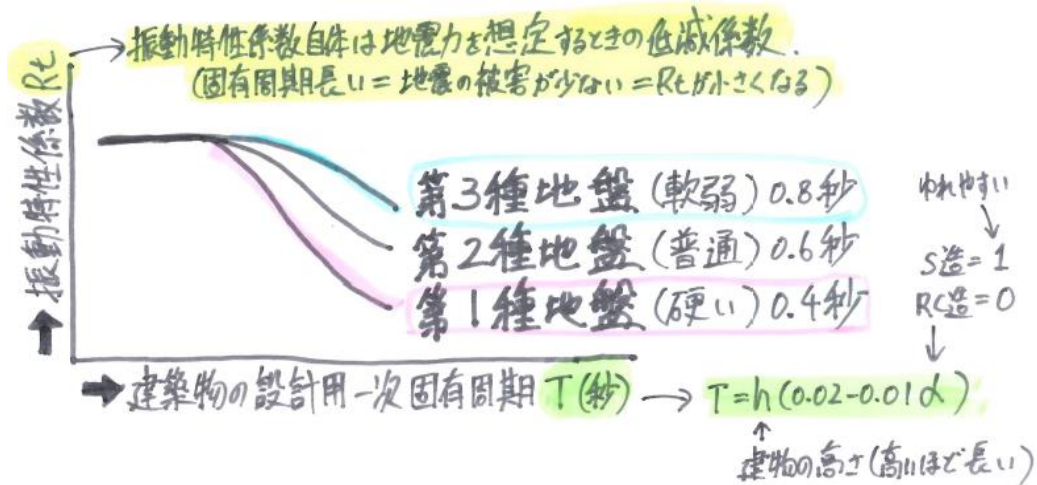 振動特性係数自体は地震力を想定するときの低減係数.
(固有周期長い=地震の被害が少ない=Rtが小さくなる)
➡振動特性係数 Rt
第3種地盤(軟弱)0.8秒
第2種地盤(普通)0.6秒
第1種地盤(硬い)0.4秒
ゆれやすい
S造=1
RC造=0
➡建築物の設計用一次固有周期 T(秒) → T=h(0.02-0.01α)
建物の高さ(高いほど長い)